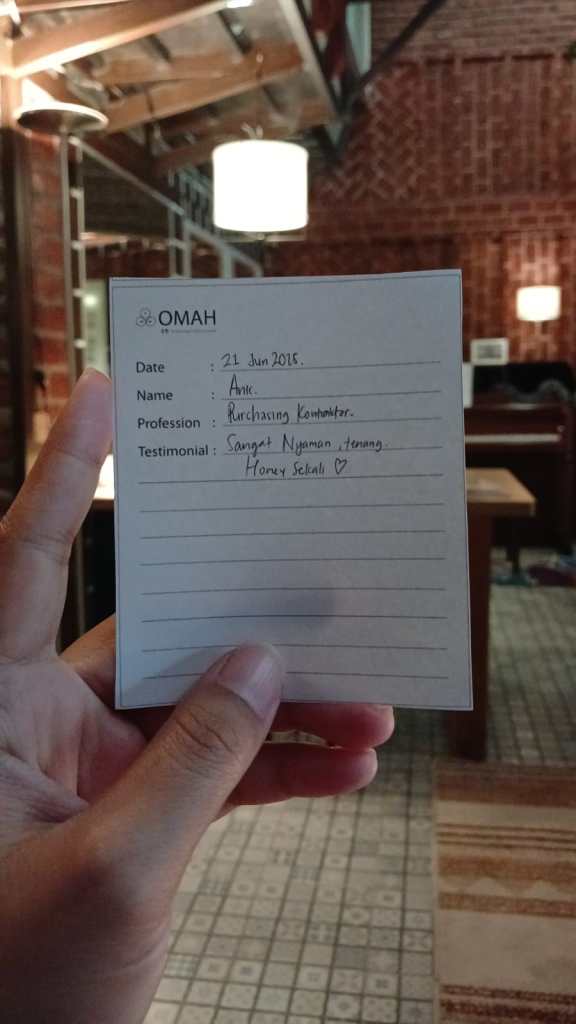 OMAH
Date : 21 Jun 2025.
Name : Anic.
Profession : Purchasing Kontraktor.
Testimonial : Sangat Nyaman, tenang.
Homey Sekali ♡